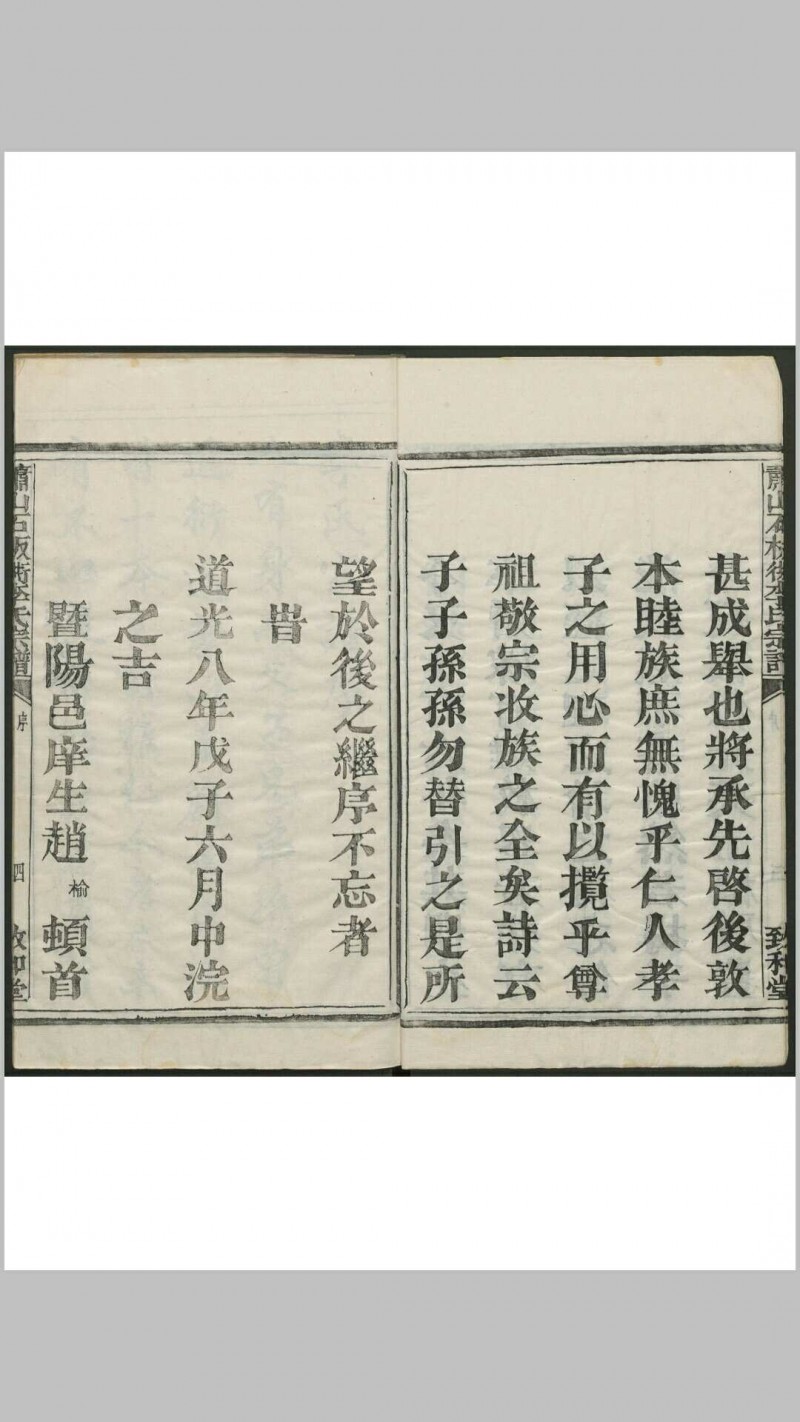 甚成舉也將承先啓後敦
本睦族庶無愧乎仁人孝
子之用心而有以攬乎尊
祖敬宗收族之全矣詩云
子子孫孫勿替引之是所
望於後之繼序不忘者
旹
道光八年戊子六月中浣
之吉
暨陽邑庠生趙 榆 頓首
蕭山石板衖李氏宗譜
序
四
致和堂